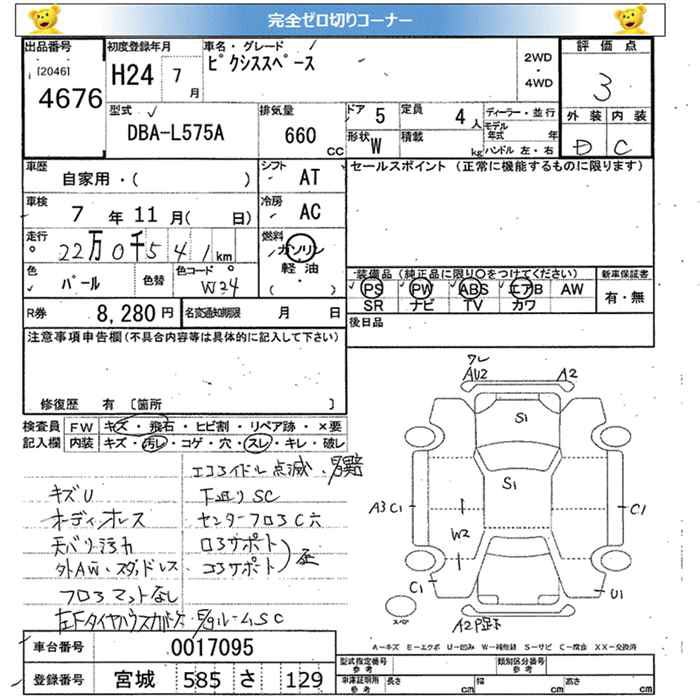 完全ゼロ切りコーナー
出品番号 [2046] 4676
初度登録年月 H24 7 月
車名・グレード ピクシススペース
2WD ・ 4WD
評価点 3
外装 内装 D C
型式 DBA-L575A
排気量 660 CC
ドア 5
定員 4 人
形状 W
積載 kg
ディーラー・並行
モデル年式 年
ハンドル 左・右
車歴 自家用・( )
シフト AT
セールスポイント (正常に機能するものに限ります)
車検 7 年 11 月( 日)
冷房 AC
走行 22万0千541 km
燃料 ガソリン 軽油 ( )
色 パール 色替
色コード W24
装備品 (純正品に限り○をつけてください)
PS PW ABS エアB AW
SR ナビ TV カワ
新車保証書 有・無
R券 8,280 円
名変通知期限 月 日
後日品
注意事項申告欄 (不具合内容等は具体的に記入して下さい)
修復歴 有 〔箇所 〕
検査員記入欄
FW キズ・飛石・ヒビ割・リペア跡・×要
内装 キズ・汚レ・コゲ・穴・スレ・キレ・破レ
エコアイドル点滅
キズU 下廻りSC
オーディオレス
天バリ汚れ
外AW・スタッドレス
フロアマットなし
左Fタイヤハウスカバー欠 E/gルームSC
ワレ
AU2 A2
S1
S1
A3 C1 C1
W2
C1 U1
スペア
A2P
A-キズ E-エクボ U-凹み W-補修跡 S-サビ C-腐食 XX-交換済
車台番号 0017095
登録番号 宮城 585 さ 129
型式指定番号 参考 類別区分番号 参考
車庫証明用 参考 長さ cm 幅 cm 高さ cm